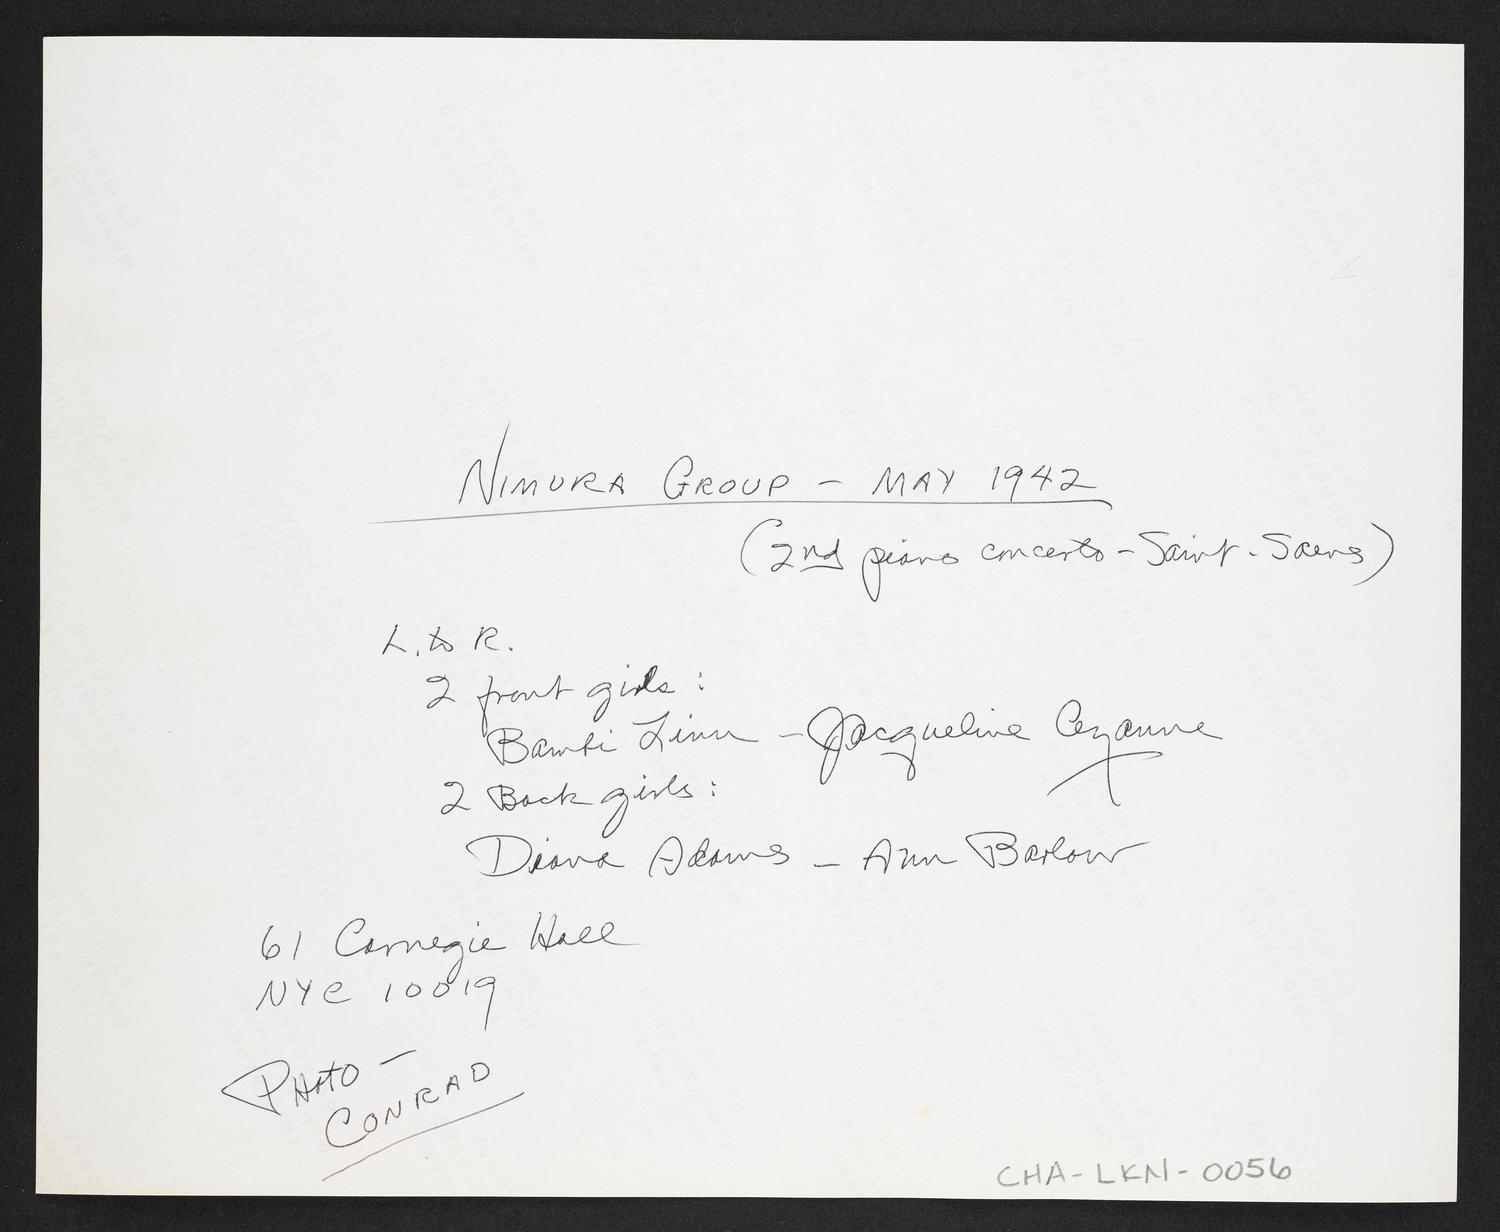 NIMURA GROUP - MAY 1942
(2nd piano concerto - Saint-Saens)
L. to R.
2 front girls :
Bambi Linn - Jacqueline Cezanne
2 Back girls :
Diana Adams - Ann Barlow
61 Carnegie Hall
NYC 10019
PHOTO -
CONRAD
CHA-LKN-0056
THIS PAPER
MANUFACTURED
BY KODAK